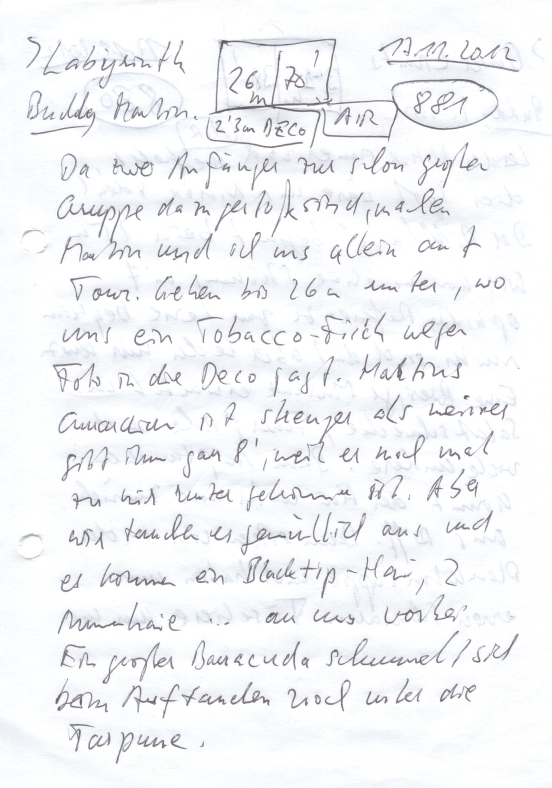 > Labyrinth
26 m
70'
17.11.2012
Buddy Martin.
2' 3m DECO
AIR
881
Da zwo Anfänger zur schon großen
Gruppe dazu gestoßen sind, machen
Martin und ich uns allein auf
Tour. Gehen bis 26 m runter, wo
uns ein Tobacco-Fisch wegen
Foto in die Deco jagt. Martins
Guardian ist strenger als meiner
gibt ihm gar 8', weil er noch mal
zu mir runter gekommen ist. Aber
wir tauchen es gemütlich aus und
es kommen ein Blacktip-Hai, 2
Ammenhaie ... an uns vorbei.
Ein großer Barracuda schummelt sich
beim Auftauchen noch unter die
Tarpune.